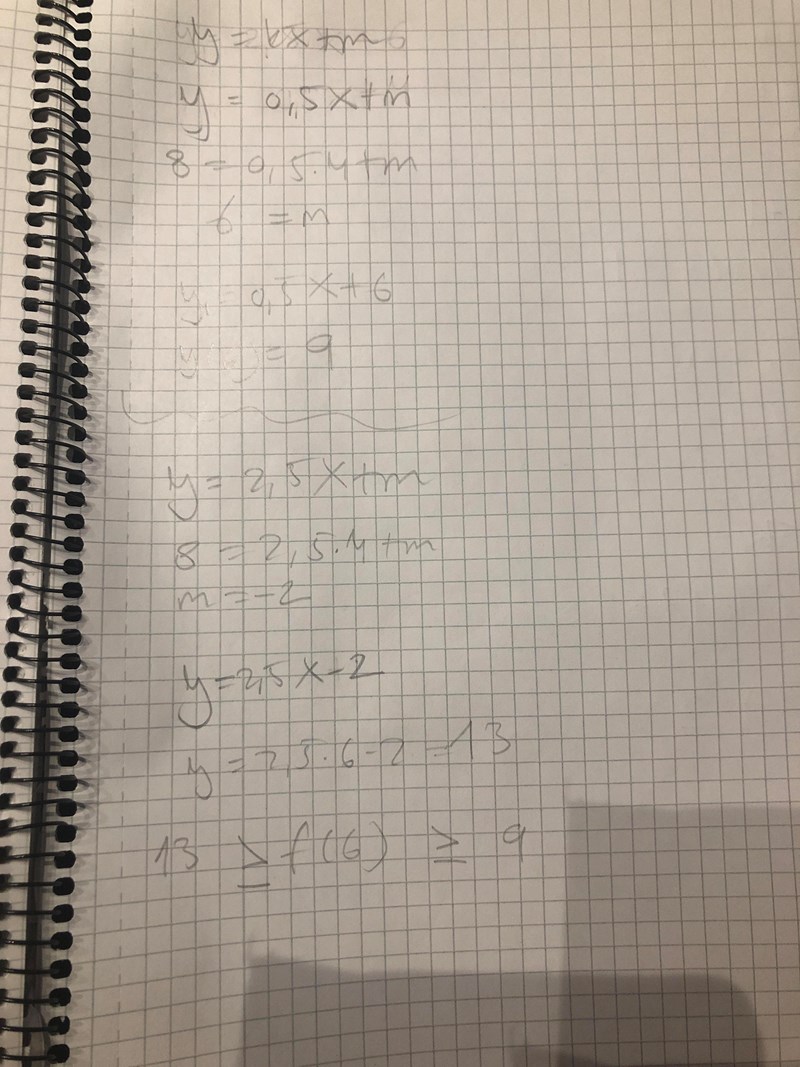 y = kx+m
y = 0,5x+m
8 = 0,5·4+m
6 = m
y = 0,5x+6
= 9
y = 2,5x+m
8 = 2,5·4+m
m = -2
y = 2,5x-2
y = 2,5·6-2 = 13
13 ≥ f(6) ≥ 9